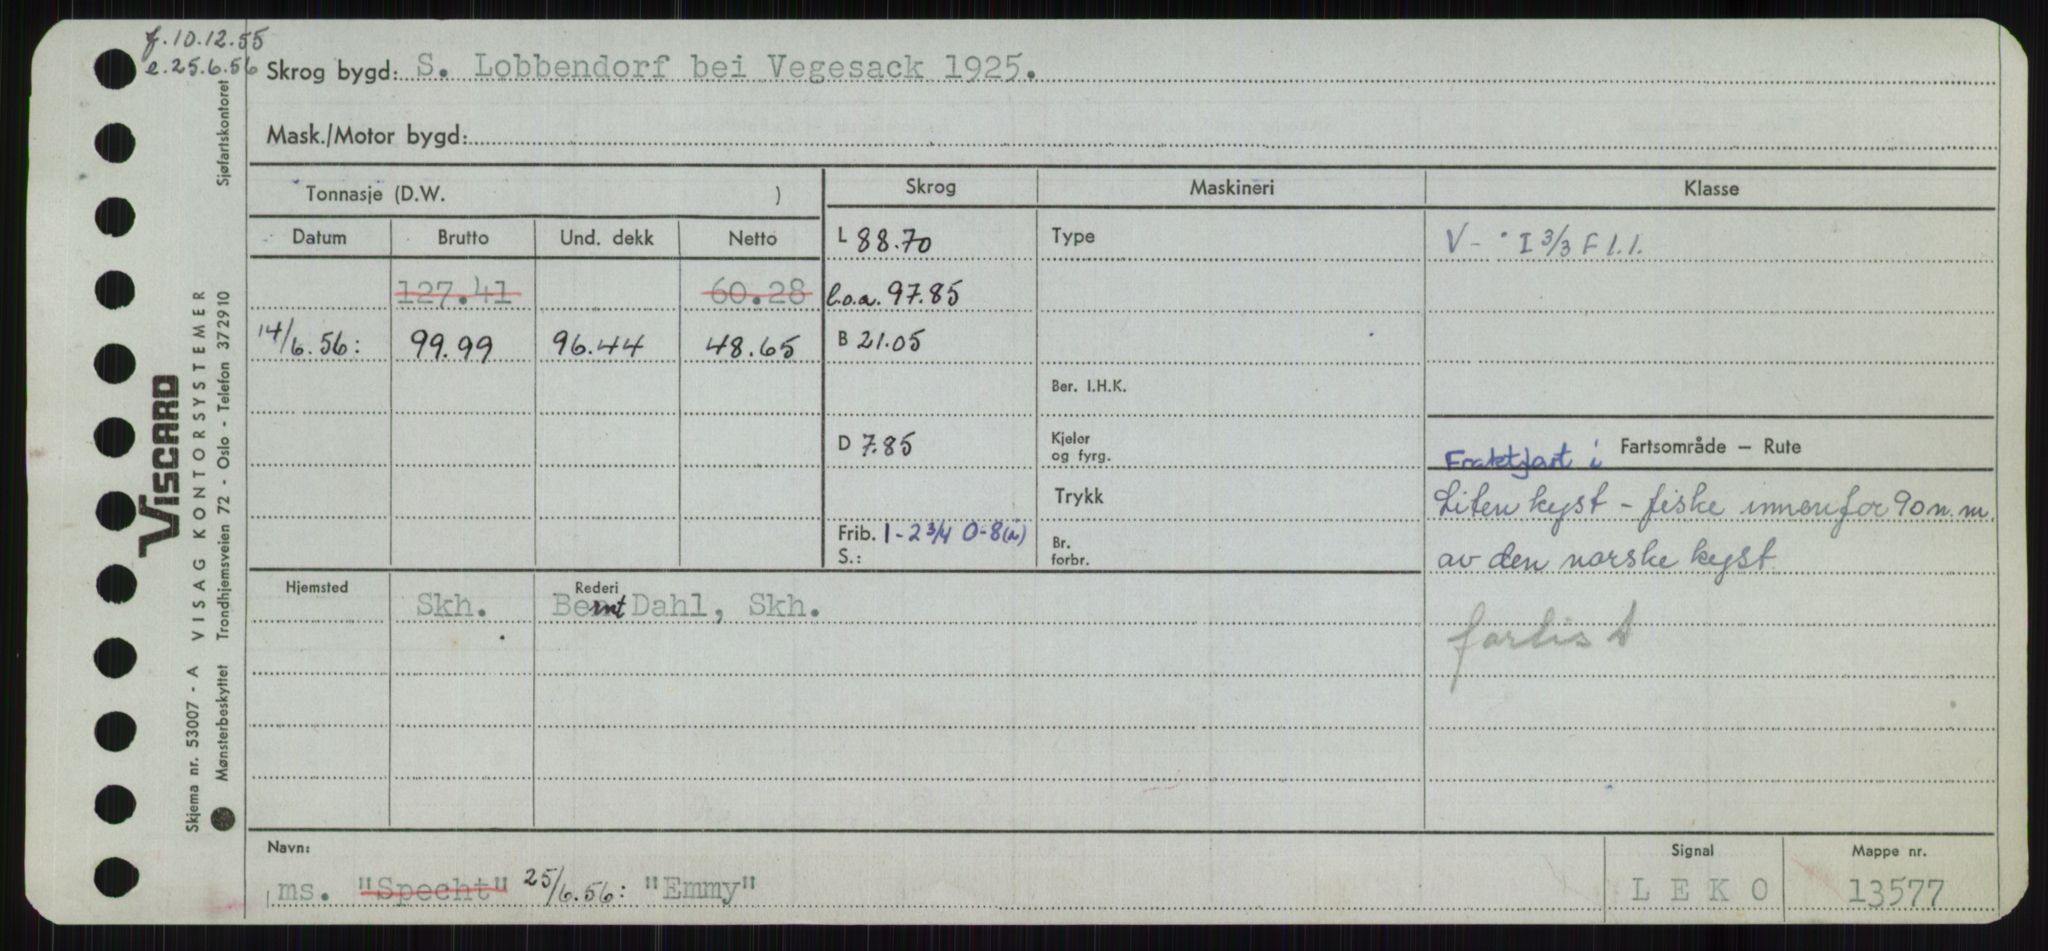 f.10.12.55
e.25.6.56
Skrog bygd: S. Lobbendorf bei Vegesack 1925.
Mask./Motor bygd:
Tonnasje (D.W. )
Skrog
Maskineri
Klasse
Datum Brutto Und. dekk Netto
L 88.70
Type
V - I 3/3 F 1.1.
127.41 60.28
l.o.a. 97.85
14/6.56: 99.99 96.44 48.65
B 21.05
Ber. I.H.K.
D 7.85
Kjeler
og fyrg.
Fartsområde – Rute
Fraktfart i
Trykk
Liten kyst - fiske innenfor 90 n.m.
Frib. 1-2 3/4 0-8(i)
S.:
Br.
forbr.
av den norske kyst
Hjemsted
Rederi
Skh. Bernt Dahl, Skh.
forlist
Navn:
Signal
Mappe nr.
ms. "Specht" 25/6.56: "Emmy"
L E K O
13577
Viscard
VISAG KONTORSYSTEMER
Skjema nr. 53007 - A
Mønsterbeskyttet Trondhjemsveien 72 - Oslo - Telefon 372910
Sjøfartskontoret